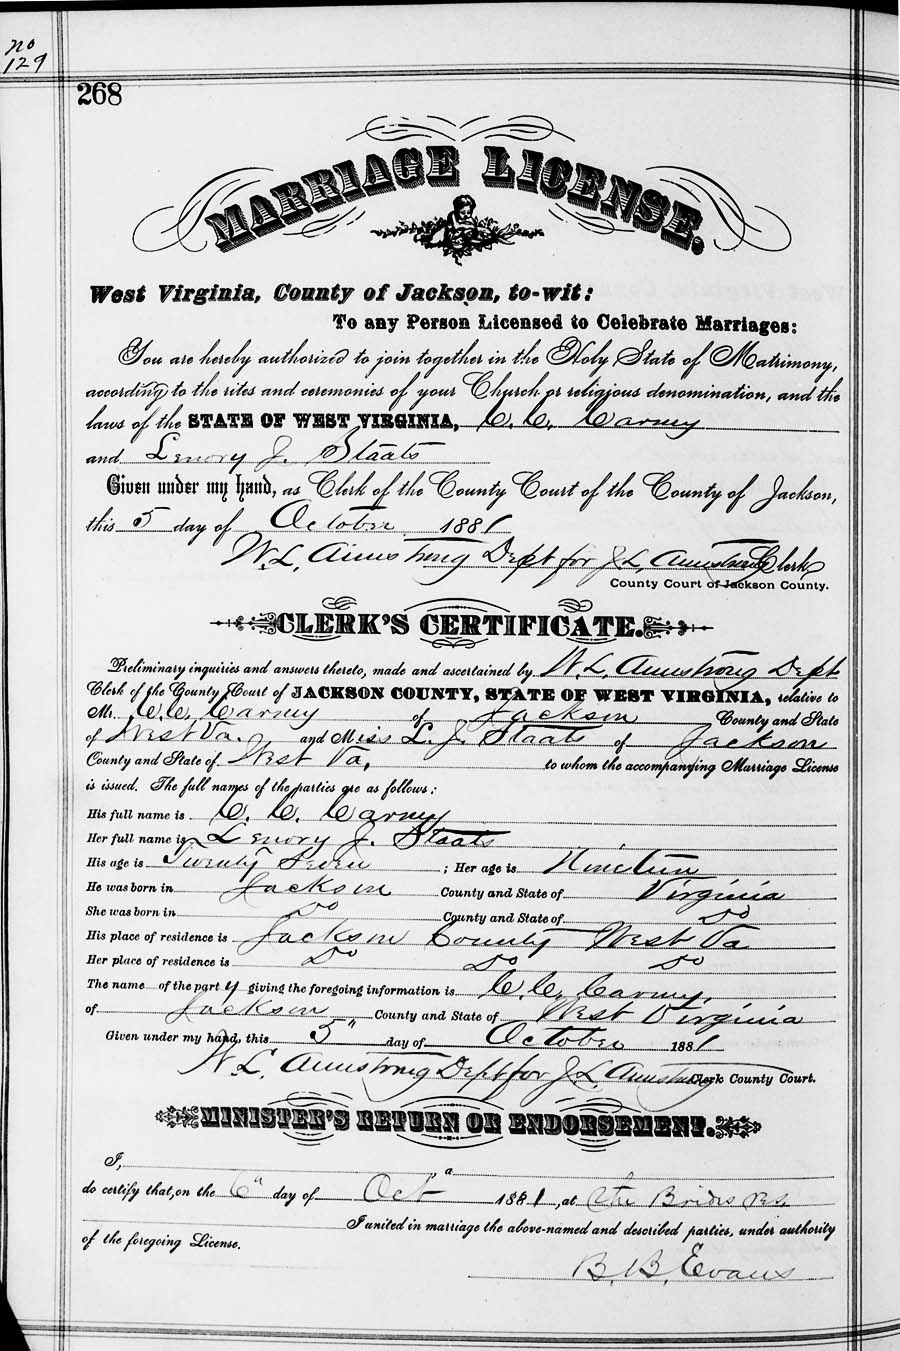 no
129
268
MARRIAGE LICENSE.
West Virginia, County of Jackson, to-wit:
To any Person Licensed to Celebrate Marriages:
You are hereby authorized to join together in the Holy State of Matrimony,
according to the rites and ceremonies of your Church or religious denomination, and the
laws of the STATE OF WEST VIRGINIA, C. C. Carney
and Lenory J. Staats
Given under my hand, as Clerk of the County Court of the County of Jackson,
this 5 day of October 1881
W. L. Armstrong Dept for J L, Armstrong Clerk
County Court of Jackson County.
CLERK'S CERTIFICATE.
Preliminary inquiries and answers thereto, made and ascertained by W. L. Armstrong Dept
Clerk of the County Court of JACKSON COUNTY, STATE OF WEST VIRGINIA, relative to
Mr. C. C. Carney of Jackson County and State
of West Va. and Miss L. J. Staats of Jackson
County and State of West Va, to whom the accompanying Marriage License
is issued. The full names of the parties are as follows:
His full name is C. C. Carney
Her full name is Lenory J. Staats
His age is Twenty Seven ; Her age is Nineteen
He was born in Jackson County and State of Virginia
She was born in Do County and State of Do
His place of residence is Jackson County West Va
Her place of residence is Do Do Do
The name of the party giving the foregoing information is C. C. Carney,
of Jackson County and State of West Virginia
Given under my hand, this 5" day of October 1881
W. L. Armstrong Dept for J. L. Armstrong Clerk County Court.
MINISTER'S RETURN OR ENDORSEMENT.
I, , a
do certify that, on the 6" day of Oct 1881, at the Brides Res.
I united in marriage the above-named and described parties, under authority
of the foregoing License.
B. B. Evans